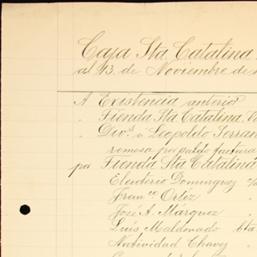 Caja Sta Catalina
al 13 de Noviembre de
A Existencia anterior
" Tienda Sta Catalina
" Div.s a Leopoldo Serran
remesa pr
por Tienda Sta Catalina
Eleuterio Dominguez
Fran.co Ortiz
José A. Márquez
Luis Maldonado
Natividad Chavez